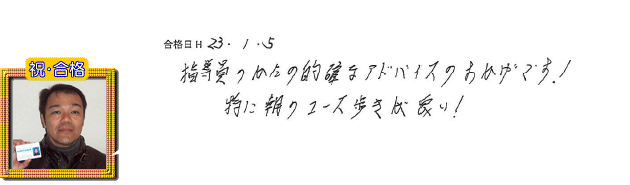 合格日 H 23・1・5
祝・合格
指導員のかたの的確なアドバイスのおかげです!
特に朝のコース歩きが良い!